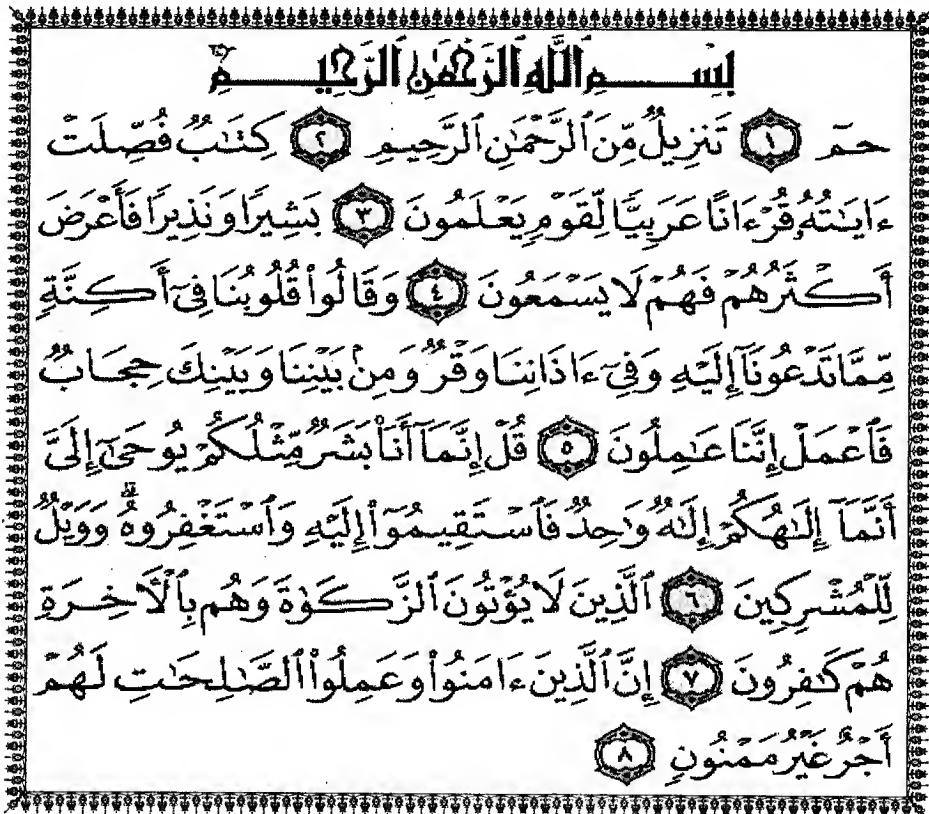 بِسْمِ ٱللَّهِ ٱلرَّحْمَٰنِ ٱلرَّحِيمِ
حمٓ ١ تَنزِيلٌ مِّنَ ٱلرَّحْمَٰنِ ٱلرَّحِيمِ ٢ كِتَٰبٌ فُصِّلَتْ
ءَايَٰتُهُۥ قُرْءَانًا عَرَبِيًّا لِّقَوْمٍ يَعْلَمُونَ ٣ بَشِيرًا وَنَذِيرًا فَأَعْرَضَ
أَكْثَرُهُمْ فَهُمْ لَا يَسْمَعُونَ ٤ وَقَالُوا۟ قُلُوبُنَا فِىٓ أَكِنَّةٍ
مِّمَّا تَدْعُونَآ إِلَيْهِ وَفِىٓ ءَاذَانِنَا وَقْرٌ وَمِنۢ بَيْنِنَا وَبَيْنِكَ حِجَابٌ
فَٱعْمَلْ إِنَّنَا عَٰمِلُونَ ٥ قُلْ إِنَّمَآ أَنَا۠ بَشَرٌ مِّثْلُكُمْ يُوحَىٰٓ إِلَىَّ
أَنَّمَآ إِلَٰهُكُمْ إِلَٰهٌ وَٰحِدٌ فَٱسْتَقِيمُوٓا۟ إِلَيْهِ وَٱسْتَغْفِرُوهُ ۗ وَوَيْلٌ
لِّلْمُشْرِكِينَ ٦ ٱلَّذِينَ لَا يُؤْتُونَ ٱلزَّكَوٰةَ وَهُم بِٱلْءَاخِرَةِ
هُمْ كَٰفِرُونَ ٧ إِنَّ ٱلَّذِينَ ءَامَنُوا۟ وَعَمِلُوا۟ ٱلصَّٰلِحَٰتِ لَهُمْ
أَجْرٌ غَيْرُ مَمْنُونٍ ٨